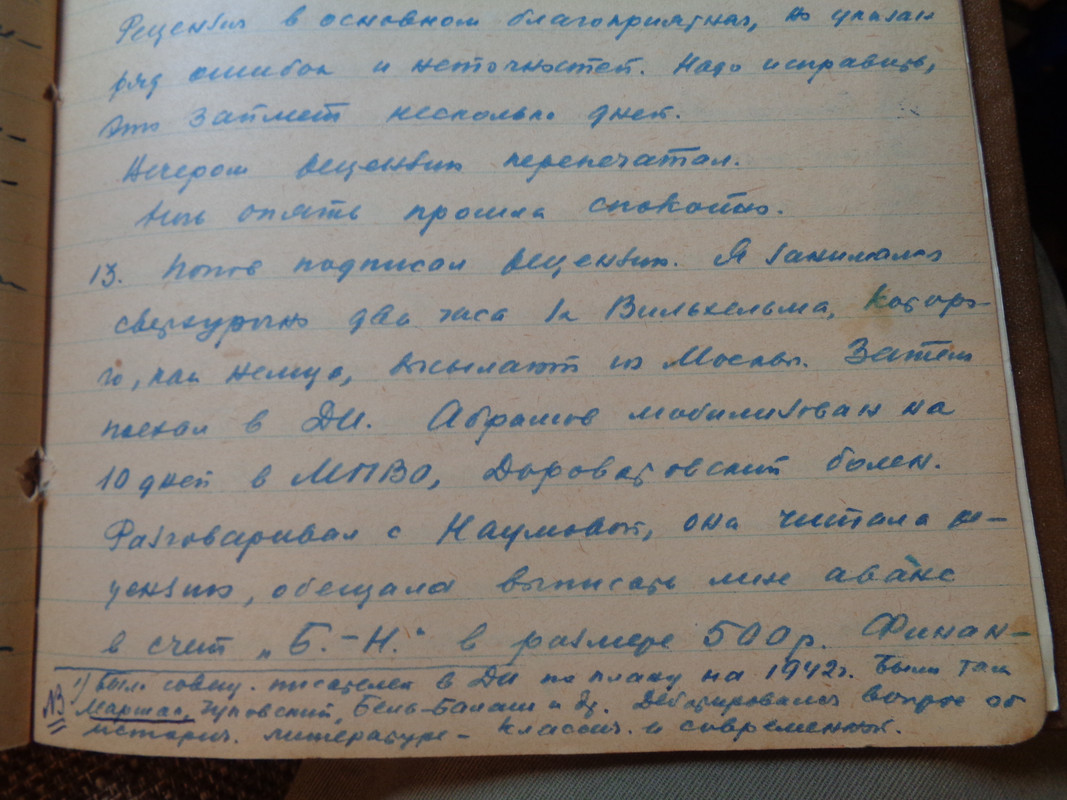 Рецензия в основном благоприятная, но указан
ряд ошибок и неточностей. Надо исправить,
это займет несколько дней.
Вечером рецензию перепечатал.
Ночь опять прошла спокойно.
13. Попов подписал рецензию. Я занимался
сверхурочно два часа за Вильхельма, которо-
го, как немца, высылают из Москвы. Затем
поехал в ДИ. Абрамов мобилизован на
10 дней в МПВО, Дороватовский болен.
Разговаривал с Наумовой, она читала ре-
цензию, обещала выписать мне аванс
в счет „Б.-Н.“ в размере 500 р. Финан-
1) Было совещ. писателей в ДИ по плану на 1942 г. Были там
NB Маршак, Чуковский, Бела-Балаш и др. Дебатировался вопрос об
историч. литературе - классич. и современной.